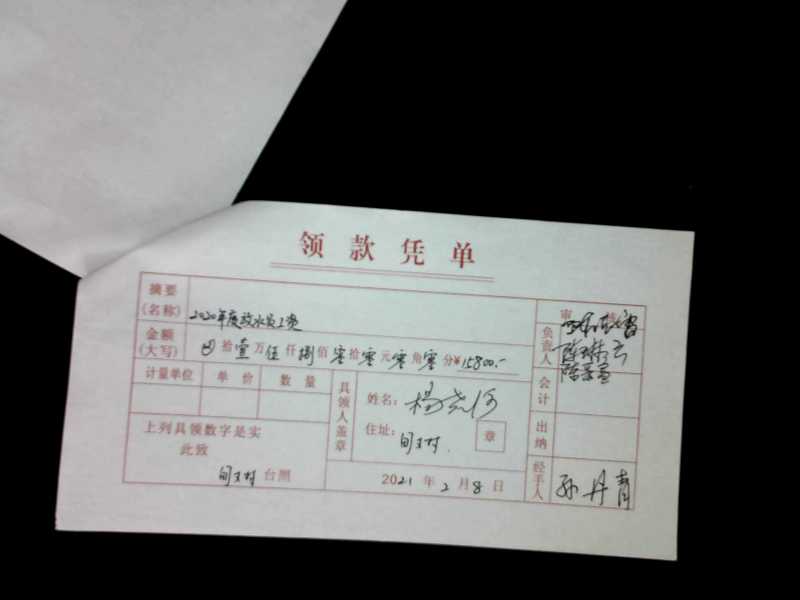 领款凭单
摘要(名称) 2020年度放水员工资
审核
金额(大写) 拾壹万伍仟捌佰零拾零元零角零分¥15800.-
负责人
计量单位 单价 数量
具领人盖章
姓名:
住址: 旬王村.
章
会计
上列具领数字是实
此致
旬王村台照
出纳
2021年2月8日
经手人 孙丹青